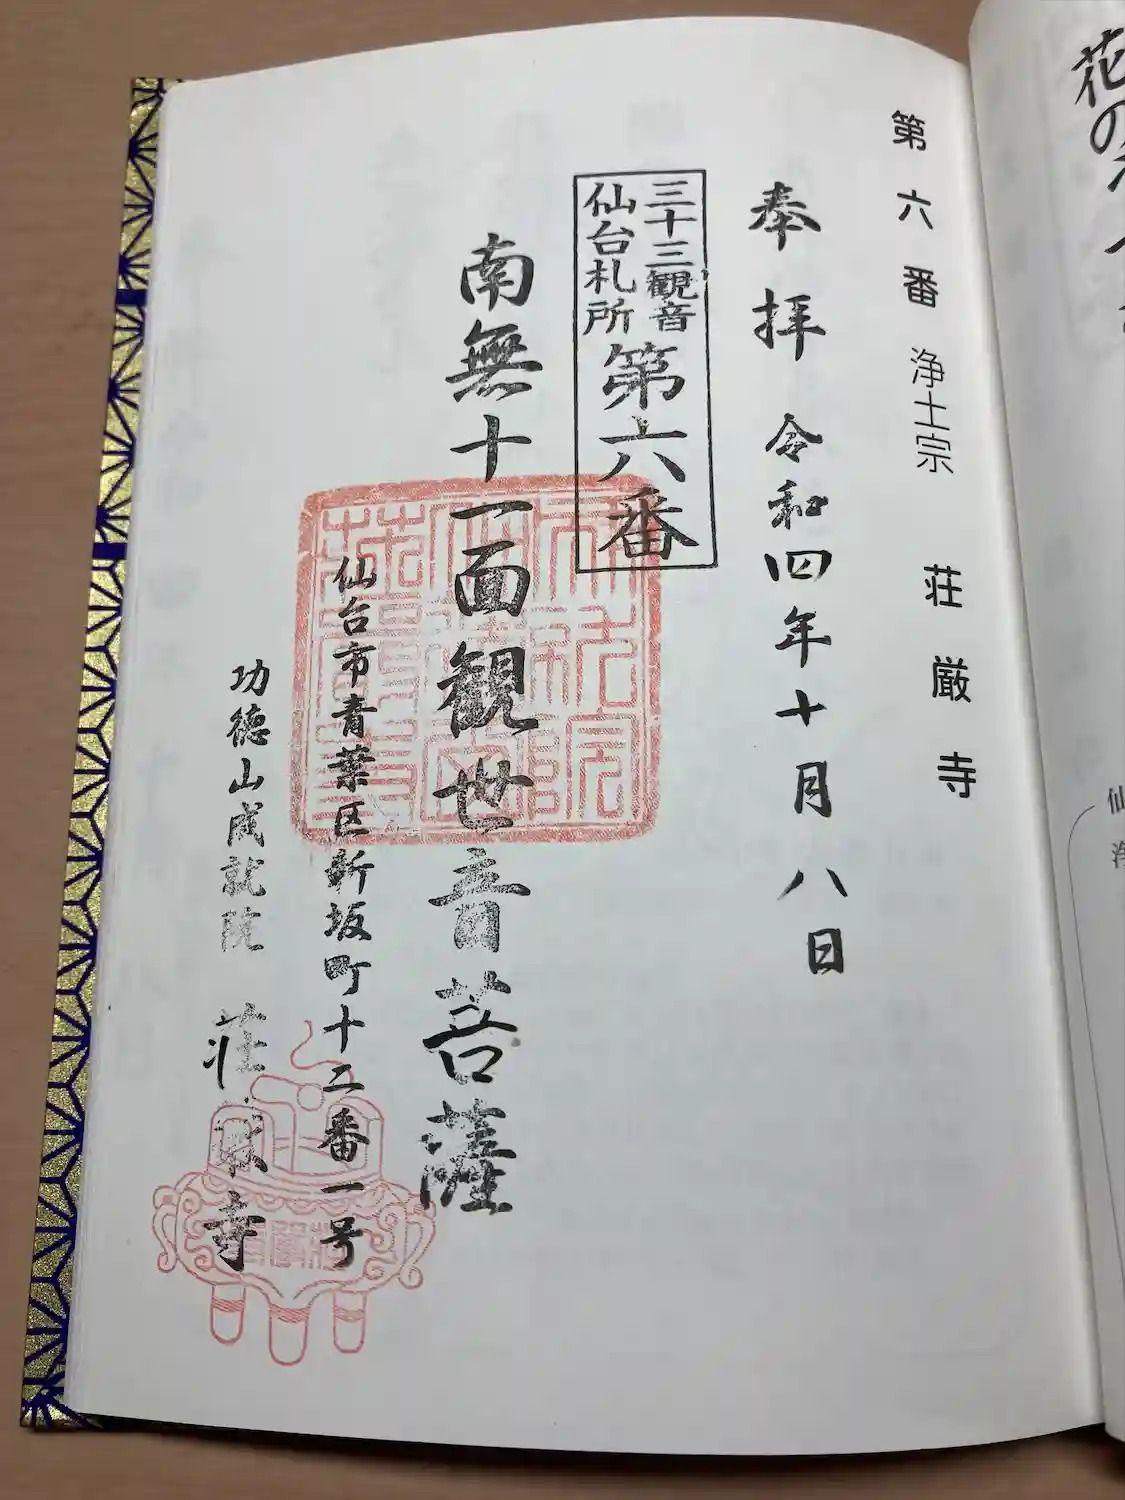 第六番 浄土宗 荘厳寺
奉拝 令和四年十月八日
三十三観音
仙台札所
第六番
南無十一面観世音菩薩
仙台市青葉区新坂町十二番一号
功徳山成就院 荘厳寺
花の
仙
浄